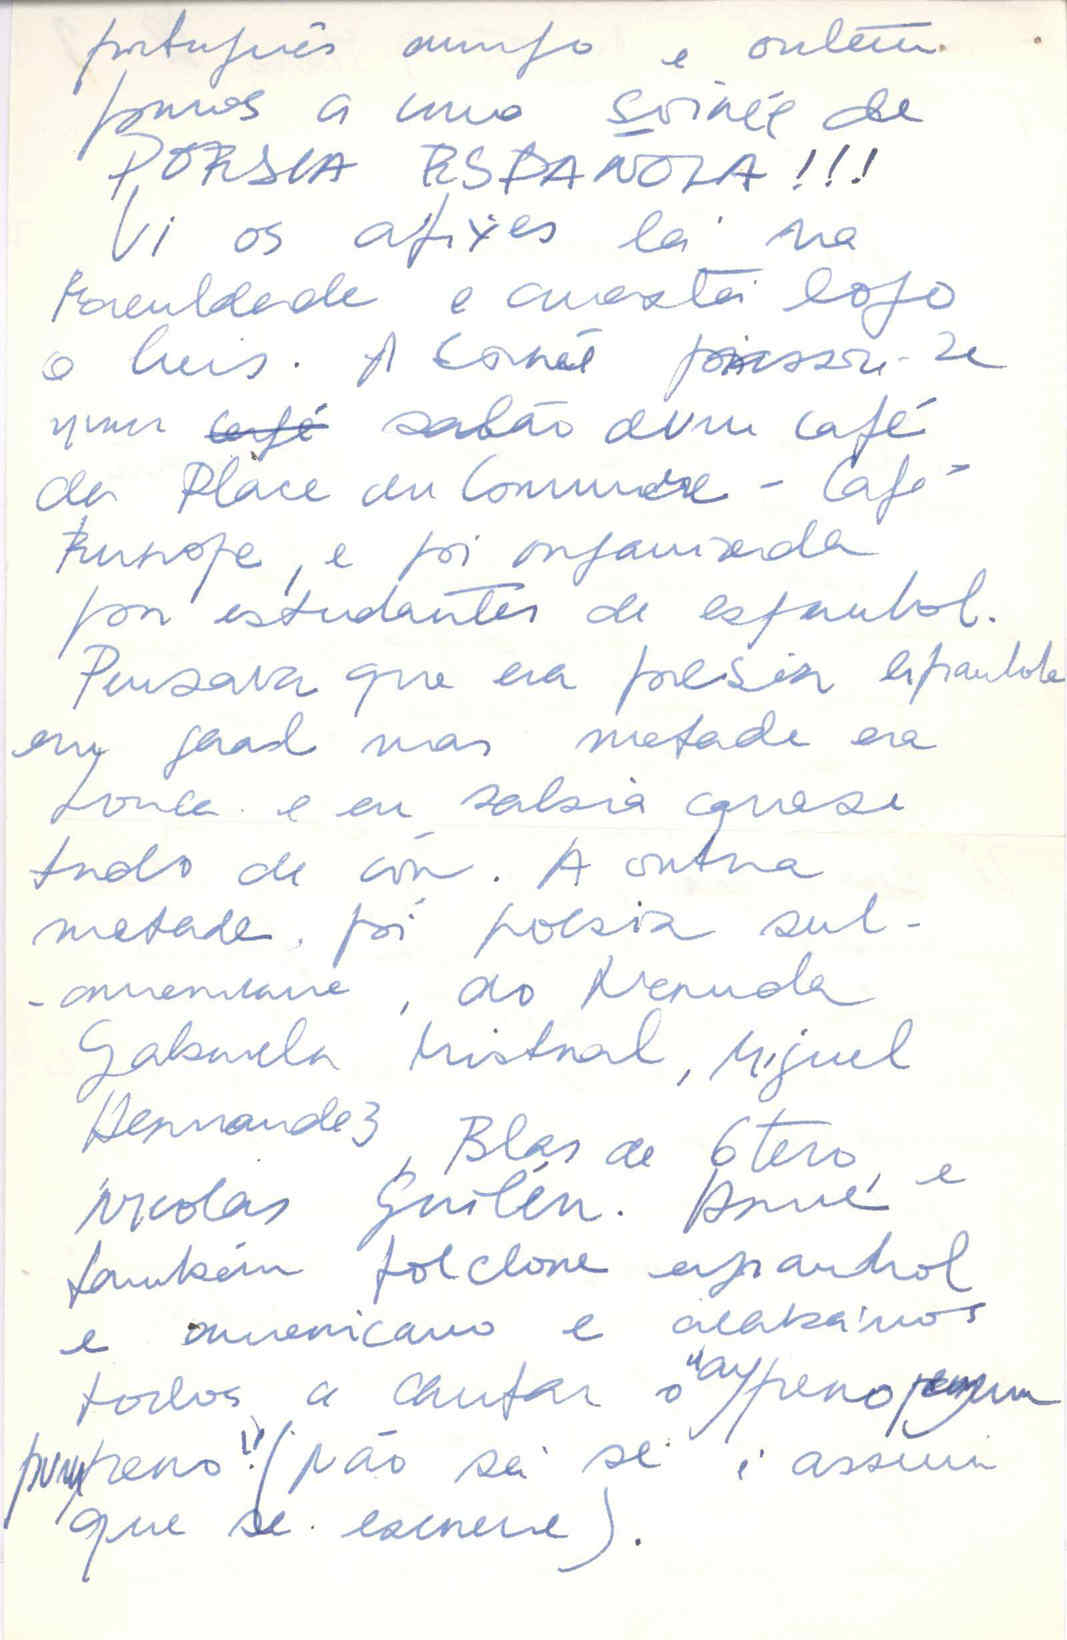 português amigo e ontem
fomos a uma soirée de
POESIA ESPAÑOLA!!!
Vi os afixes lá na
Faculdade e arrastei logo
o Luis. A soirée passou-se
num café salão dum café
da Place du Commerce - Café
Europe, e foi organizada
por estudantes de espanhol.
Pensava que era poesia espanhola
em geral mas metade era
Lorca e eu sabia quase
tudo de cór. A outra
metade foi poesia sul-
-americana, do Neruda
Gabriela Mistral, Miguel
Hernandez, Blas de Otero, e
Nicolas Guilén. Houve
também folclore espanhol
e americano e acabámos
todos a cantar o "ay pero
pumpero"! (não sei se é assim
que se escreve).